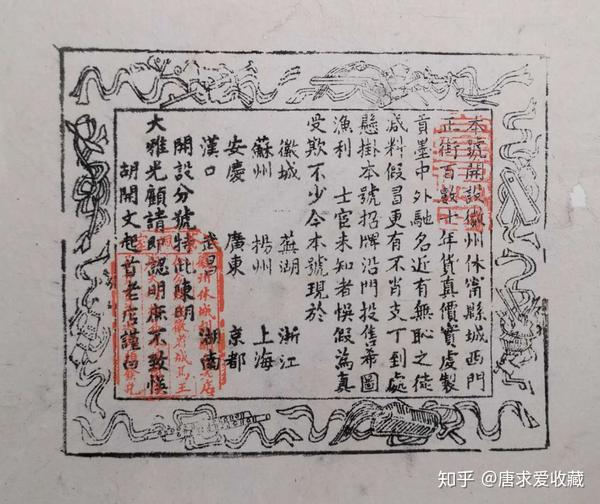 本號開設徽州休甯縣城西門
正街百數十年貨真價實虔製
貢墨中外馳名近有無恥之徒
減料假冒更有不肖支丁到處
懸掛本號招牌沿門投售希圖
漁利 士宦未知者悞假為真
受欺不少今本號現於
徽城 蕪湖 浙江
蘇州 揚州 上海
安慶 廣東 京都
漢口 武昌 湖南
開設分號特此陳明
大雅光顧請即認明庶不致悞
胡開文起首老店謹白
知乎 @唐求爱收藏